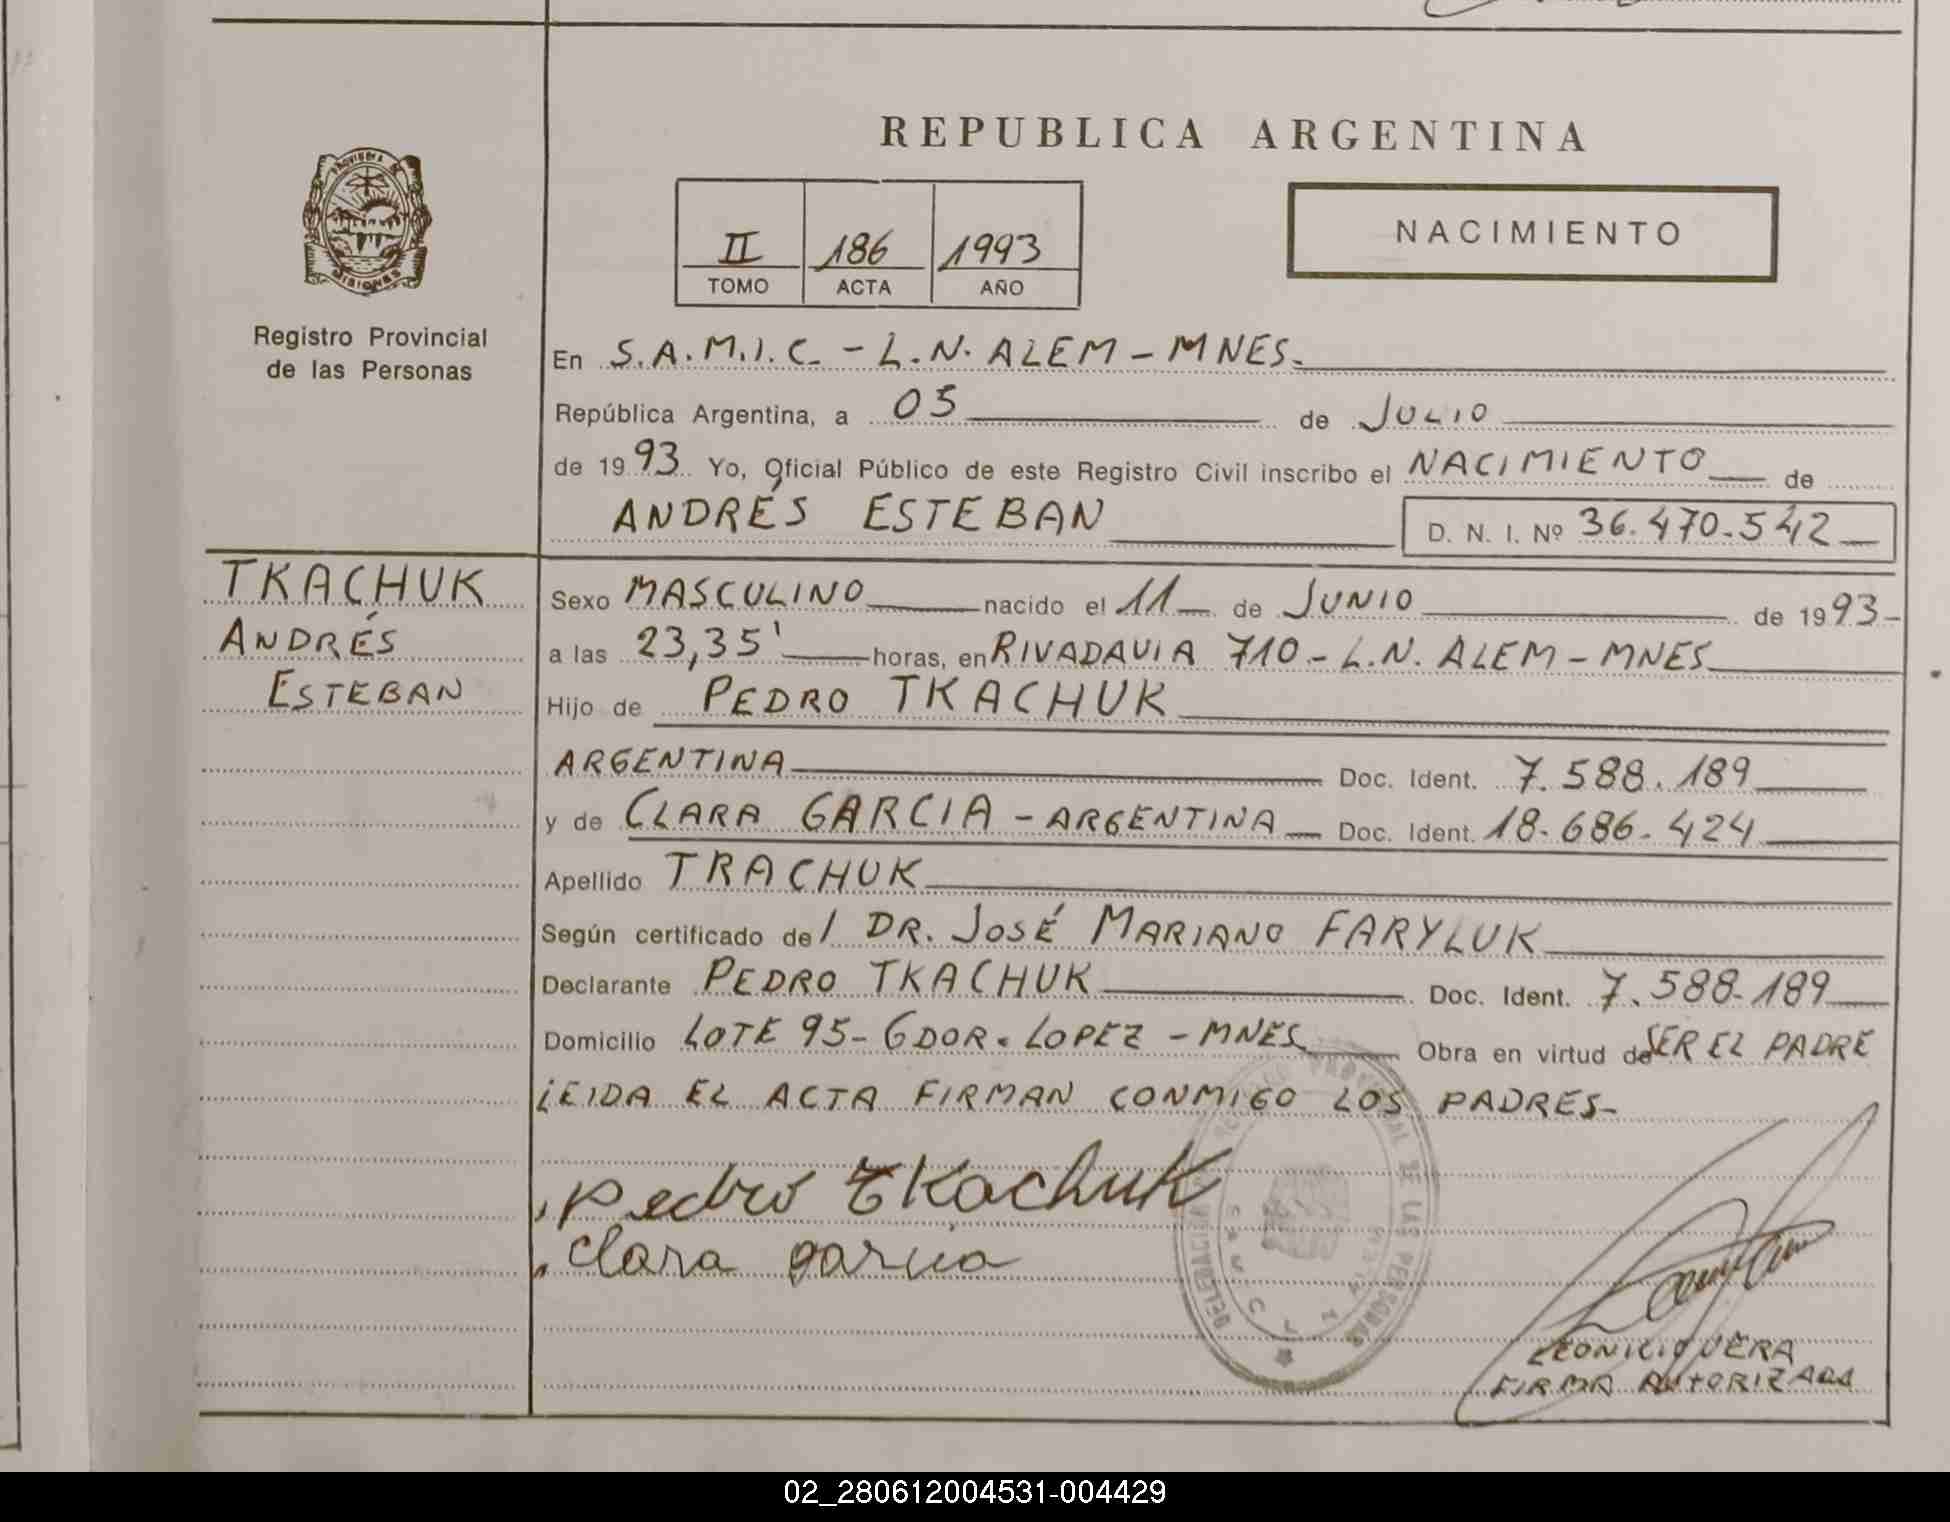 REPUBLICA ARGENTINA
NACIMIENTO
II 186 1993
TOMO ACTA AÑO
PROVINCIA DE MISIONES
Registro Provincial
de las Personas
En S.A.M.I.C. - L.N. ALEM - MNES.
República Argentina, a 05 de JULIO
de 1993 Yo, Oficial Público de este Registro Civil inscribo el NACIMIENTO de
ANDRÉS ESTEBAN D. N. I. Nº 36.470.542
TKACHUK
ANDRÉS
ESTEBAN
Sexo MASCULINO nacido el 11 de JUNIO de 1993-
a las 23,35' horas, en RIVADAVIA 710 - L.N. ALEM - MNES
Hijo de PEDRO TKACHUK
ARGENTINA Doc. Ident. 7.588.189
y de CLARA GARCIA - ARGENTINA Doc. Ident. 18.686.424
Apellido TRACHUK
Según certificado de/ DR. JOSÉ MARIANO FARYLUK
Declarante PEDRO TKACHUK Doc. Ident. 7.588.189
Domicilio LOTE 95 - GDOR. LOPEZ - MNES Obra en virtud de SER EL PADRE
LEIDA EL ACTA FIRMAN CONMIGO LOS PADRES-
Pedro Tkachuk
Clara garcia
PROVINCIAL DE LAS PERSONAS
FIRMA AUTORIZADA
02_280612004531-004429